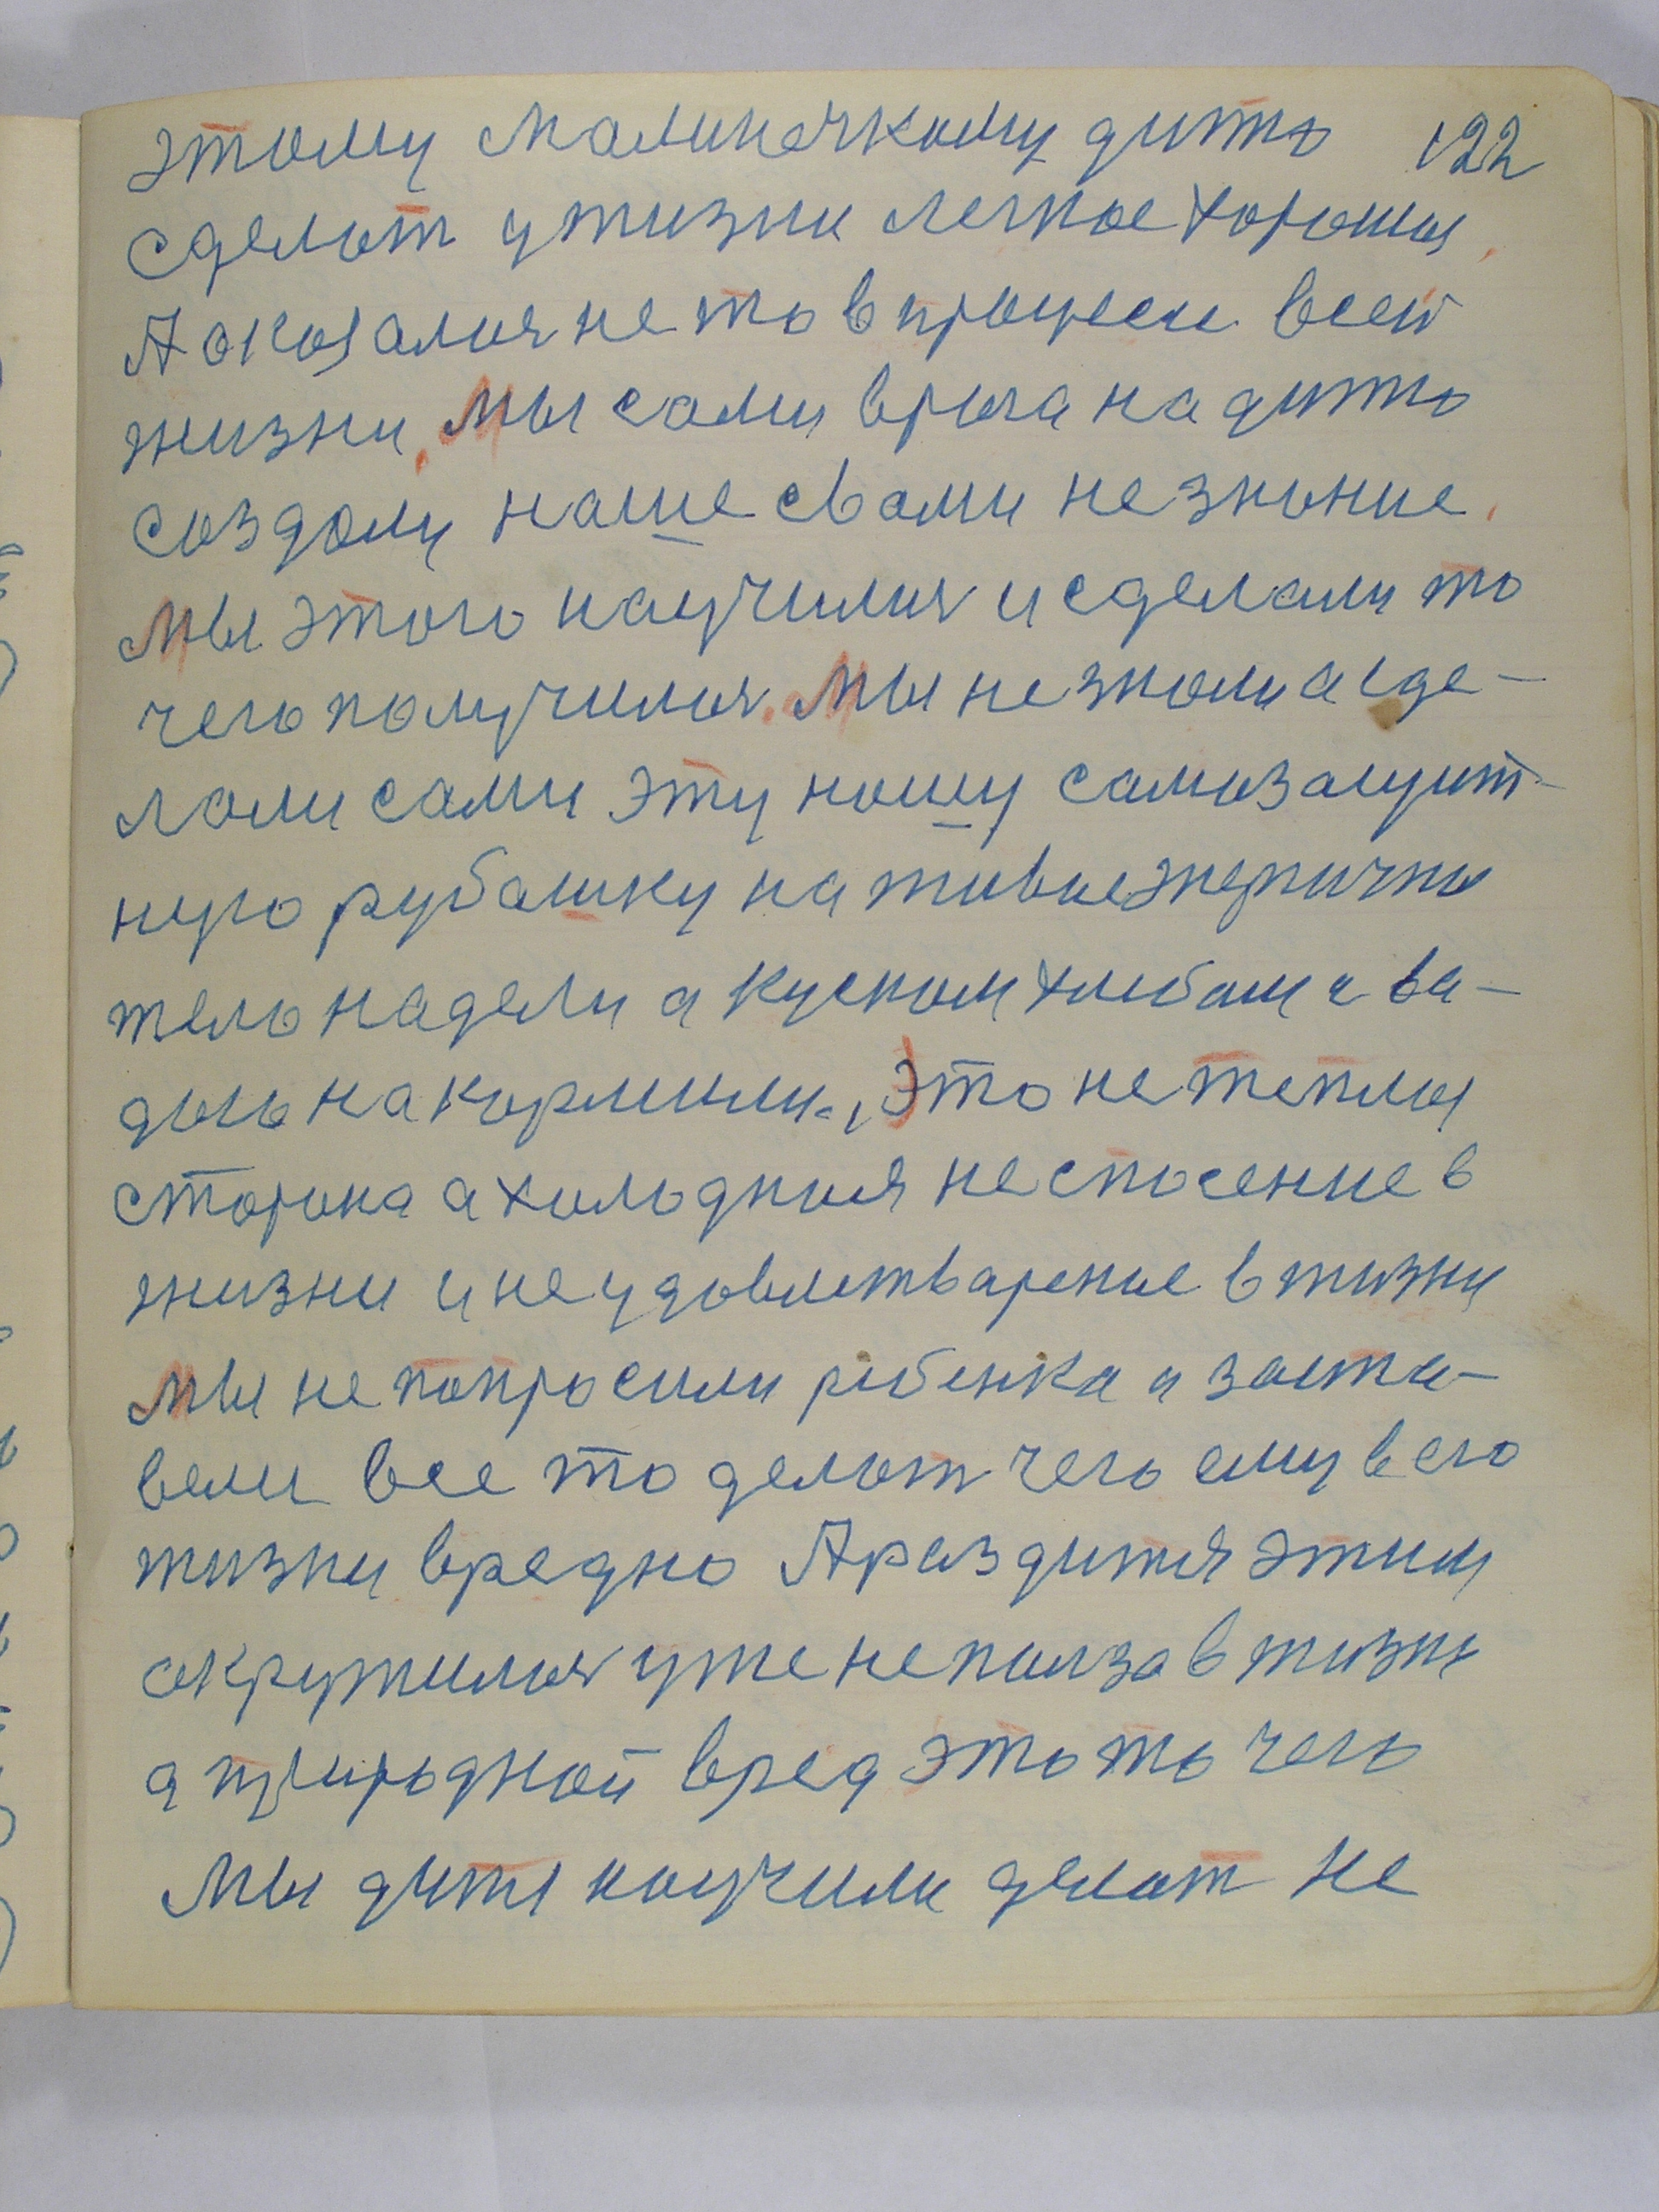 этому малинечкому дитю 122
сделат у жизни легкое хорошия
А оказалося не то в процеси всей
жизни. Мы сами врага на дитю
создали наше свами незнание.
Мы этого научилися и сделали то
чего получилося. Мы не знали а сде-
лали сами эту нашу самозащит-
ную рубашку на живое энергичное
тело надели а куском хлебом и ва-
дою накормили. Это не теплая
сторона а холодная не спосение в
жизни и не удовлетварение в жизни
Мы не попросили ребенка а заста-
вели все то делат чего ему в его
жизни вредно А раз дитя этим
окружилося уже не полза в жизни
а природной вред это то чего
Мы дитя научили делат не